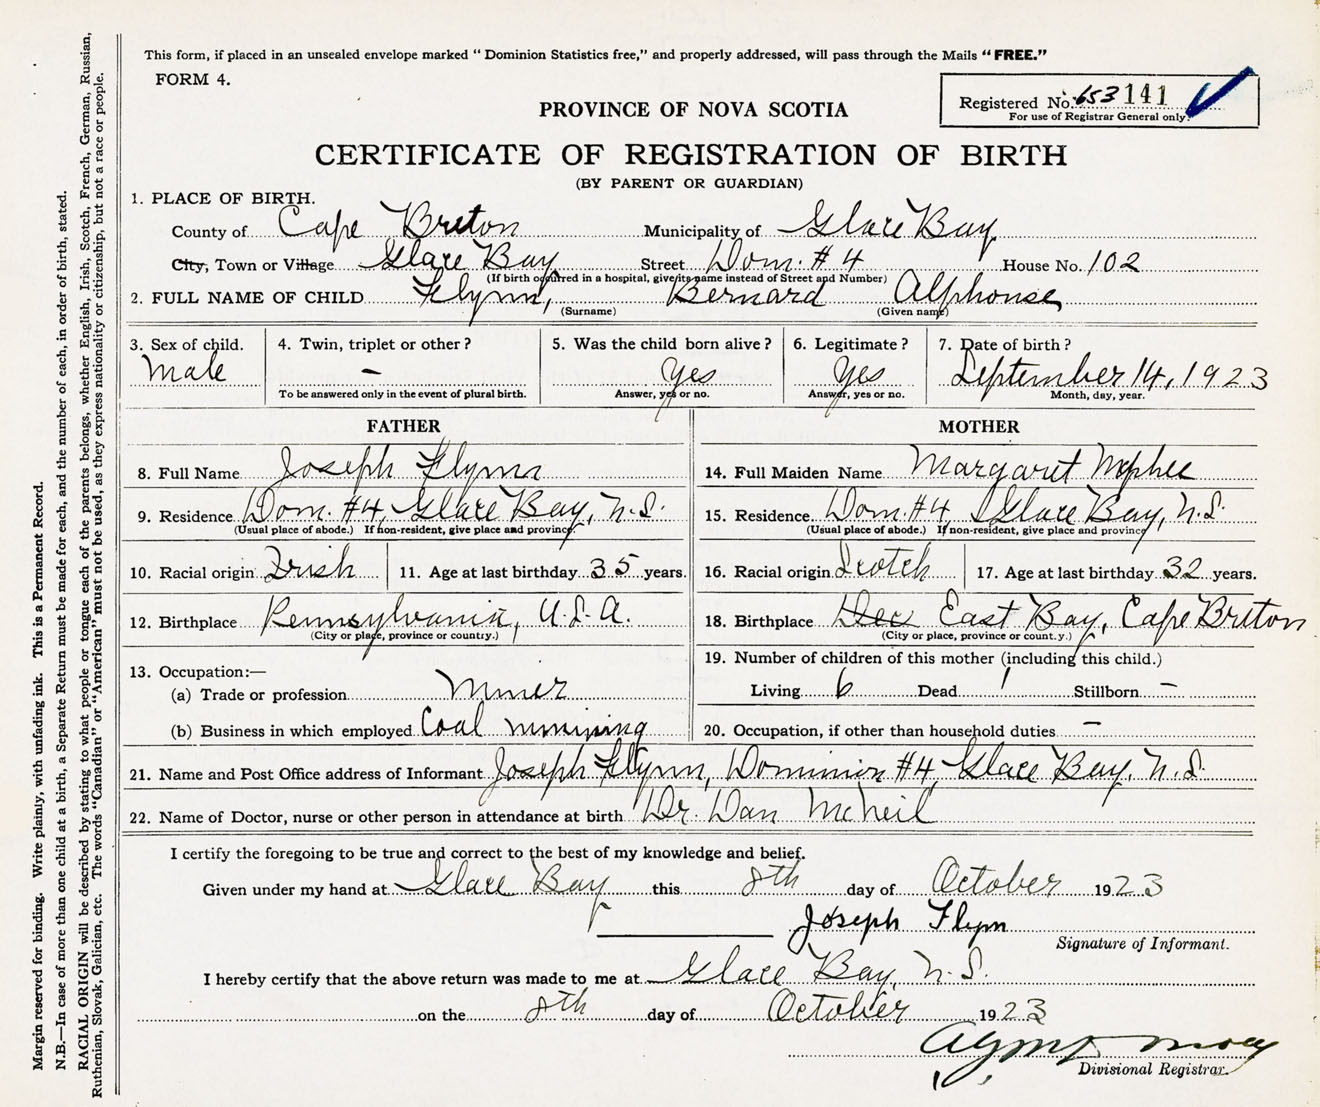 This form, if placed in an unsealed envelope marked "Dominion Statistics free," and properly addressed, will pass through the Mails "FREE."
FORM 4.
Registered No. 653141
For use of Registrar General only.
PROVINCE OF NOVA SCOTIA
CERTIFICATE OF REGISTRATION OF BIRTH
(BY PARENT OR GUARDIAN)
1. PLACE OF BIRTH.
County of Cape Breton Municipality of Glace Bay
City, Town or Village Glace Bay Street Dom. #4 House No. 102
(If birth occurred in a hospital, give its name instead of Street and Number)
2. FULL NAME OF CHILD Flynn, Bernard Alphonse
(Surname) (Given name)
3. Sex of child. 4. Twin, triplet or other? 5. Was the child born alive? 6. Legitimate? 7. Date of birth?
Male - Yes Yes September 14, 1923
To be answered only in the event of plural birth. Answer, yes or no. Answer, yes or no. Month, day, year.
FATHER MOTHER
8. Full Name Joseph Flynn 14. Full Maiden Name Margaret McPhee
9. Residence Dom. #4, Glace Bay, N.S. 15. Residence Dom. #4, Glace Bay, N.S.
(Usual place of abode.) If non-resident, give place and province. (Usual place of abode.) If non-resident, give place and province
10. Racial origin Irish 11. Age at last birthday 35 years. 16. Racial origin Scotch 17. Age at last birthday 32 years.
12. Birthplace Pennsylvania, U.S.A. 18. Birthplace East Bay, Cape Breton
(City or place, province or country.) (City or place, province or count.y.)
13. Occupation:— 19. Number of children of this mother (including this child.)
(a) Trade or profession Miner Living 6 Dead 1 Stillborn -
(b) Business in which employed Coal minining 20. Occupation, if other than household duties -
21. Name and Post Office address of Informant Joseph Flynn, Dominion #4, Glace Bay, N.S.
22. Name of Doctor, nurse or other person in attendance at birth Dr. Dan McNeil
I certify the foregoing to be true and correct to the best of my knowledge and belief.
Given under my hand at Glace Bay this 8th day of October 1923
Joseph Flynn
Signature of Informant.
I hereby certify that the above return was made to me at Glace Bay, N.S.
on the 8th day of October 1923
Divisional Registrar.
Margin reserved for binding. Write plainly, with unfading ink. This is a Permanent Record.
N.B.—In case of more than one child at a birth, a Separate Return must be made for each, and the number of each, in order of birth, stated.
RACIAL ORIGIN will be described by stating to what people or tongue each of the parents belongs, whether English, Irish, Scotch, French, German, Russian,
Ruthenian, Slovak, Galician, etc. The words "Canadian" or "American" must not be used, as they express nationality or citizenship, but not a race or people.